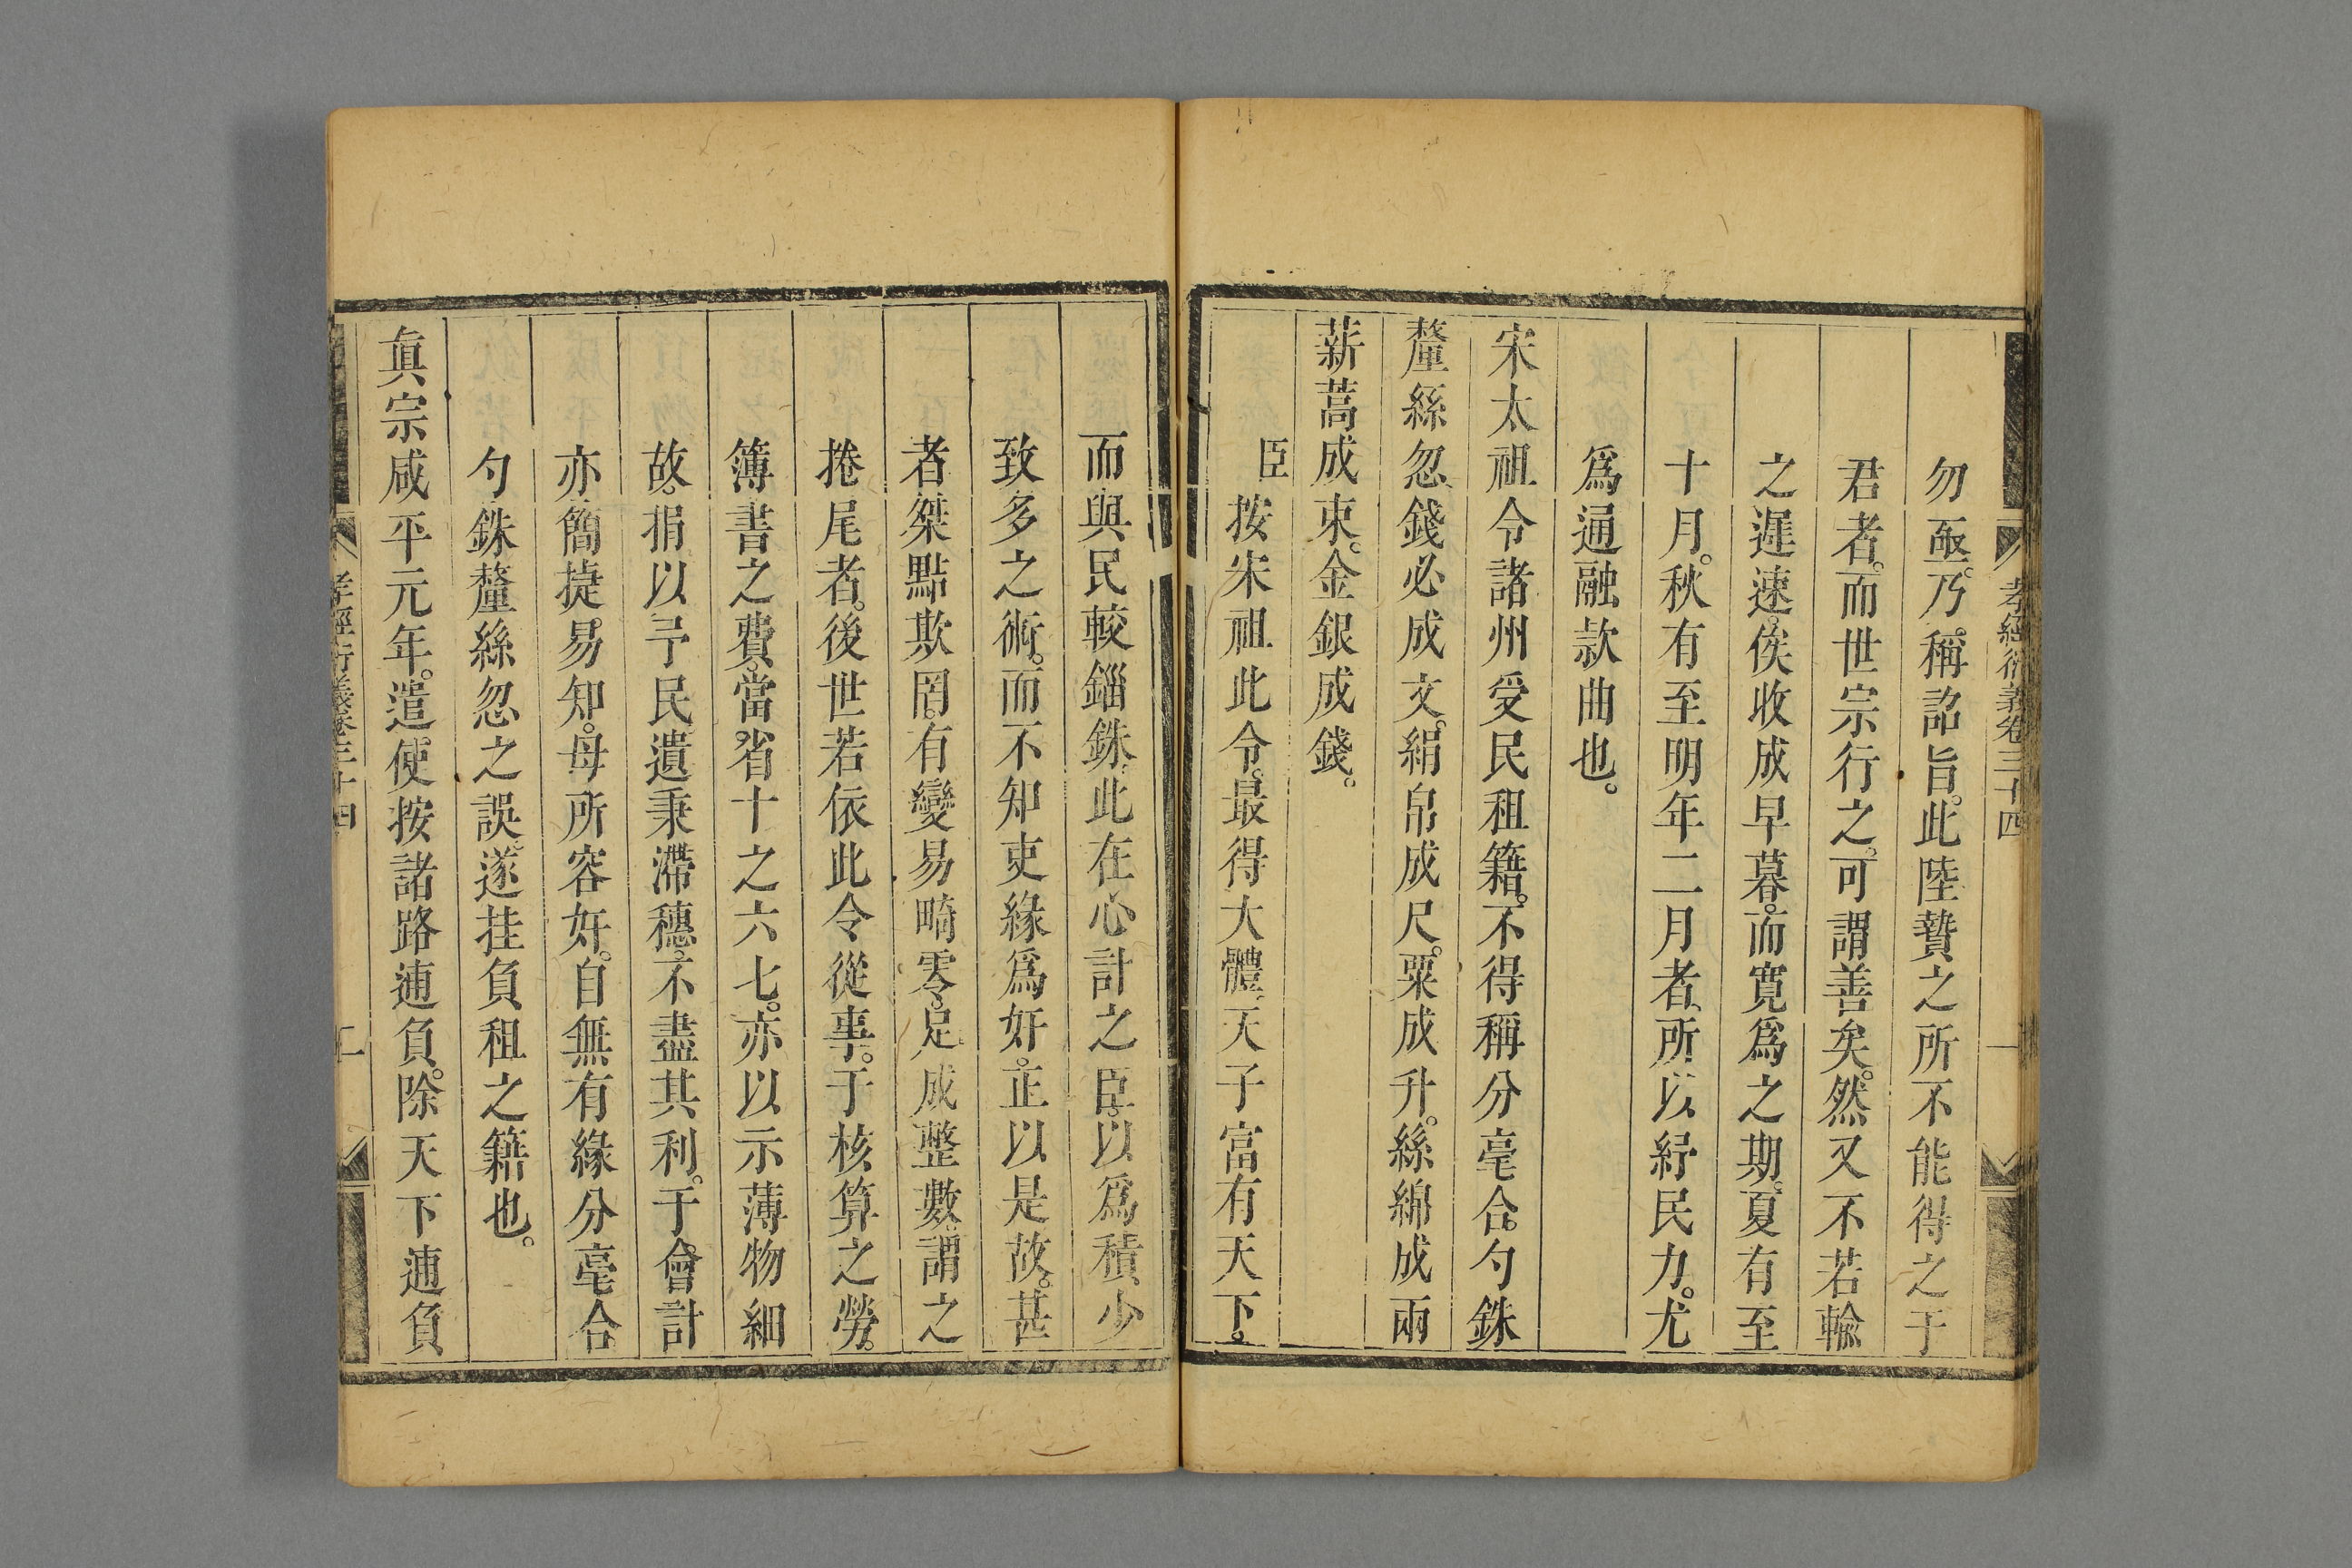 孝經衍義卷三十四
勿亟。乃。稱詔旨。此陸贄之所不能得之于
君者。而世宗行之。可謂善矣。然又不若輸
之遲速。俟收成早暮。而寬爲之期。夏有至
十月。秋有至明年二月者。所以紓民力。尤
爲通融款曲也。
宋太祖令諸州受民租籍。不得稱分毫合。勺銖
釐絲忽。錢必成文。絹帛成尺。粟成升。絲綿成兩
薪蒿成束。金銀成錢。
臣按宋祖此令。最得大體。天子富有天下。
而與民較錙銖。此在心計之臣。以爲積少
致多之術。而不知吏緣爲奸。正以是故。甚
者桀黠欺罔。有變易畸零。足成整數。謂之
捲尾者。後世若依此令從事。于核算之勞。
簿書之費。當省十之六七。亦以示薄物細
故。捐以予民。遺秉滯穗。不盡其利。于會計
亦簡捷易知。毋所容奸。自無有緣分毫合
勺銖釐絲忽之誤。遂挂負租之籍也。
眞宗咸平元年。遣使按諸路逋負。除天下逋負
孝經衍義卷三十四